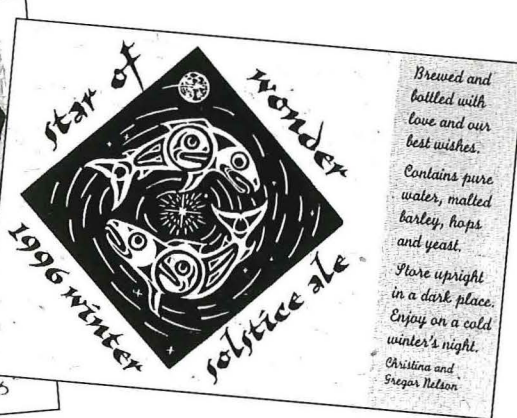 star of
wonder
1996 winter
solstice ale
Brewed and
bottled with
love and our
best wishes.
Contains pure
water, malted
barley, hops
and yeast.
Store upright
in a dark place.
Enjoy on a cold
winter's night.
Christina and
Gregor Nelson